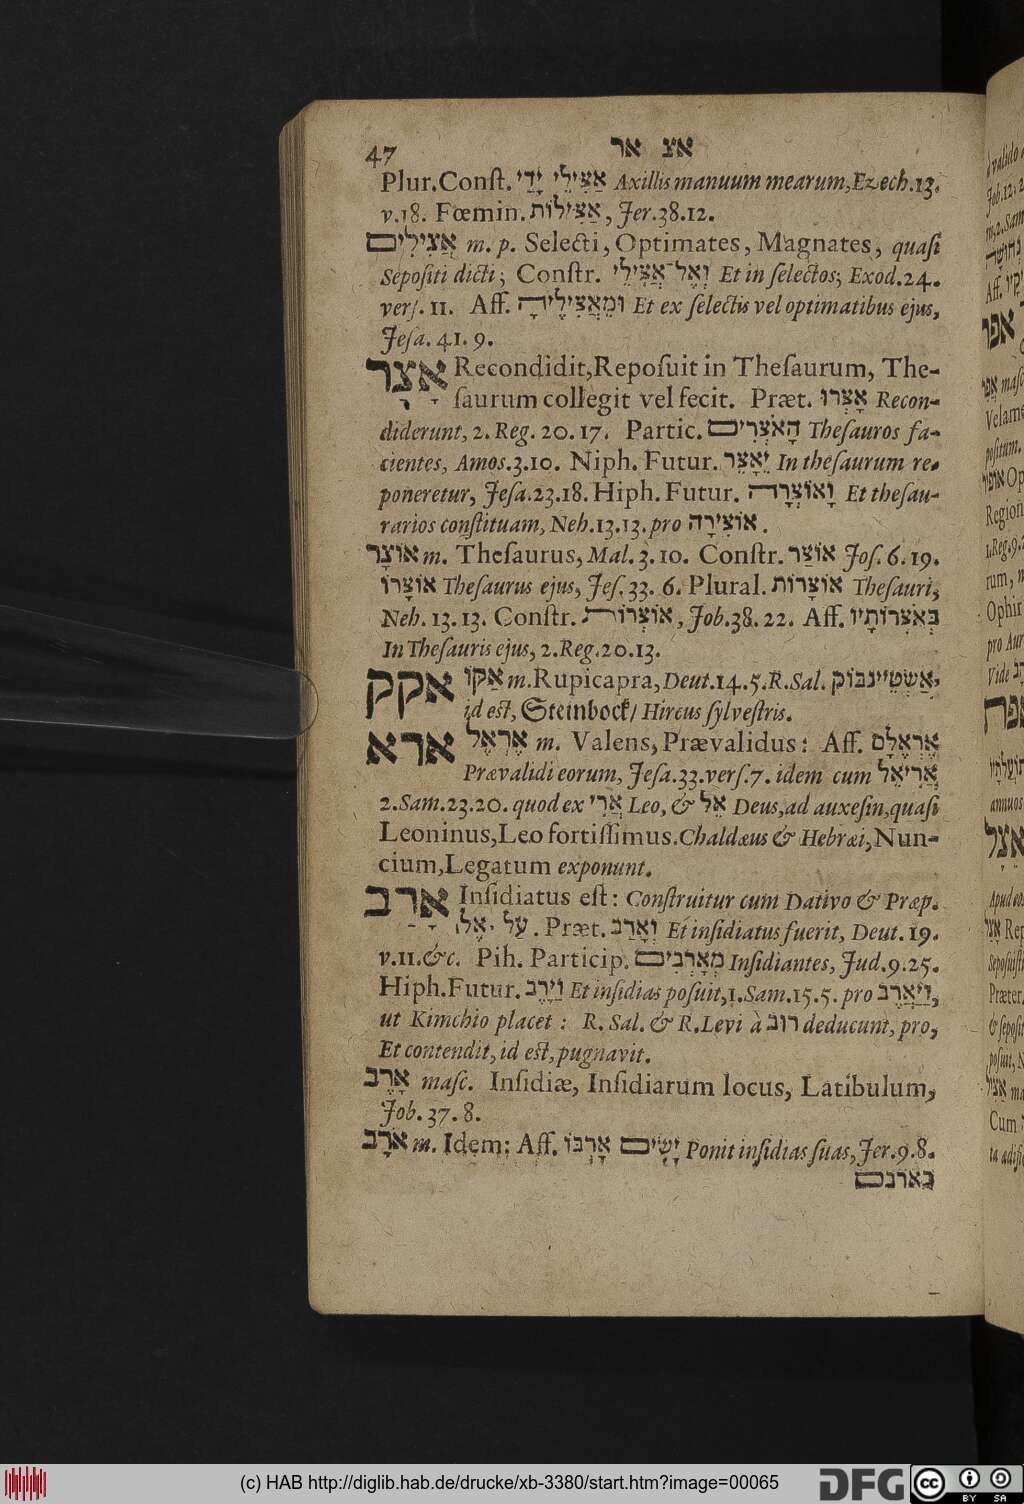 47 אצ אר
Plur.Conſt. אַצִּילֵי יָדַי Axillis manuum mearum, Ezech.13.
v.18. Fœmin. אַצִּילוֹת, Jer.38.12.
אֲצִילִים m. p. Selecti, Optimates, Magnates, quaſi
Sepoſiti dicti; Conſtr. וְאֶל־אֲצִילֵי Et in ſelectos; Exod.24.
verſ. 11. Aff. וּמֵאֲצִילֶיהָ Et ex ſelectis vel optimatibus ejus,
Jeſa. 41. 9.
אָצַר Recondidit, Repoſuit in Theſaurum, The-
ſaurum collegit vel fecit. Præt. אָצְרוּ Recon-
diderunt, 2. Reg. 20. 17. Partic. הָאֹצְרִים Theſauros fa-
cientes, Amos.3.10. Niph. Futur. יֵאָצֵר In theſaurum re-
poneretur, Jeſa.23.18. Hiph. Futur. וָאוֹצְרָה Et theſau-
rarios conſtituam, Neh.13.13. pro אוֹצִירָה.
אוֹצָר m. Theſaurus, Mal. 3. 10. Conſtr. אוֹצַר Joſ. 6. 19.
אוֹצָרוֹ Theſaurus ejus, Jeſ. 33. 6. Plural. אוֹצָרוֹת Theſauri,
Neh. 13. 13. Conſtr. אוֹצְרוֹת, Job.38. 22. Aff. בְּאֹצְרוֹתָיו
In Theſauris ejus, 2. Reg. 20. 13.
אקק אַקּוֹ m. Rupicapra, Deut.14.5. R. Sal. אַשְׂטֵיינבּוֹק,
id eſt, Steinbock/ Hircus ſylveſtris.
ארא אֶרְאֶל m. Valens, Prævalidus: Aff. אֶרְאֶלָּם
Prævalidi eorum, Jeſa.33. verſ.7. idem cum אֲרִיאֵל
2. Sam. 23.20. quod ex אֲרִי Leo, & אֵל Deus, ad auxeſin, quaſi
Leoninus, Leo fortiſſimus. Chaldæus & Hebræi, Nun-
cium, Legatum exponunt.
אָרַב Inſidiatus eſt: Conſtruitur cum Dativo & Præp.
עַל, אֶל. Præt. וְאָרַב Et inſidiatus fuerit, Deut. 19.
v.11. &c. Pih. Particip. מְאָרְבִים Inſidiantes, Jud.9.25.
Hiph. Futur. וַיָּרֶב Et inſidias poſuit, 1. Sam.15.5. pro וַיַּאֲרֵב,
ut Kimchio placet: R. Sal. & R. Levi à רוּב deducunt, pro,
Et contendit, id eſt, pugnavit.
אֶרֶב maſc. Inſidiæ, Inſidiarum locus, Latibulum,
Job. 37. 8.
אֹרֶב m. Idem: Aff. יָשִׂים אָרְבּוֹ Ponit inſidias ſuas, Jer.9.8.
כארבם
(c) HAB http://diglib.hab.de/drucke/xb-3380/start.htm?image=00065
DFG cc BY SA